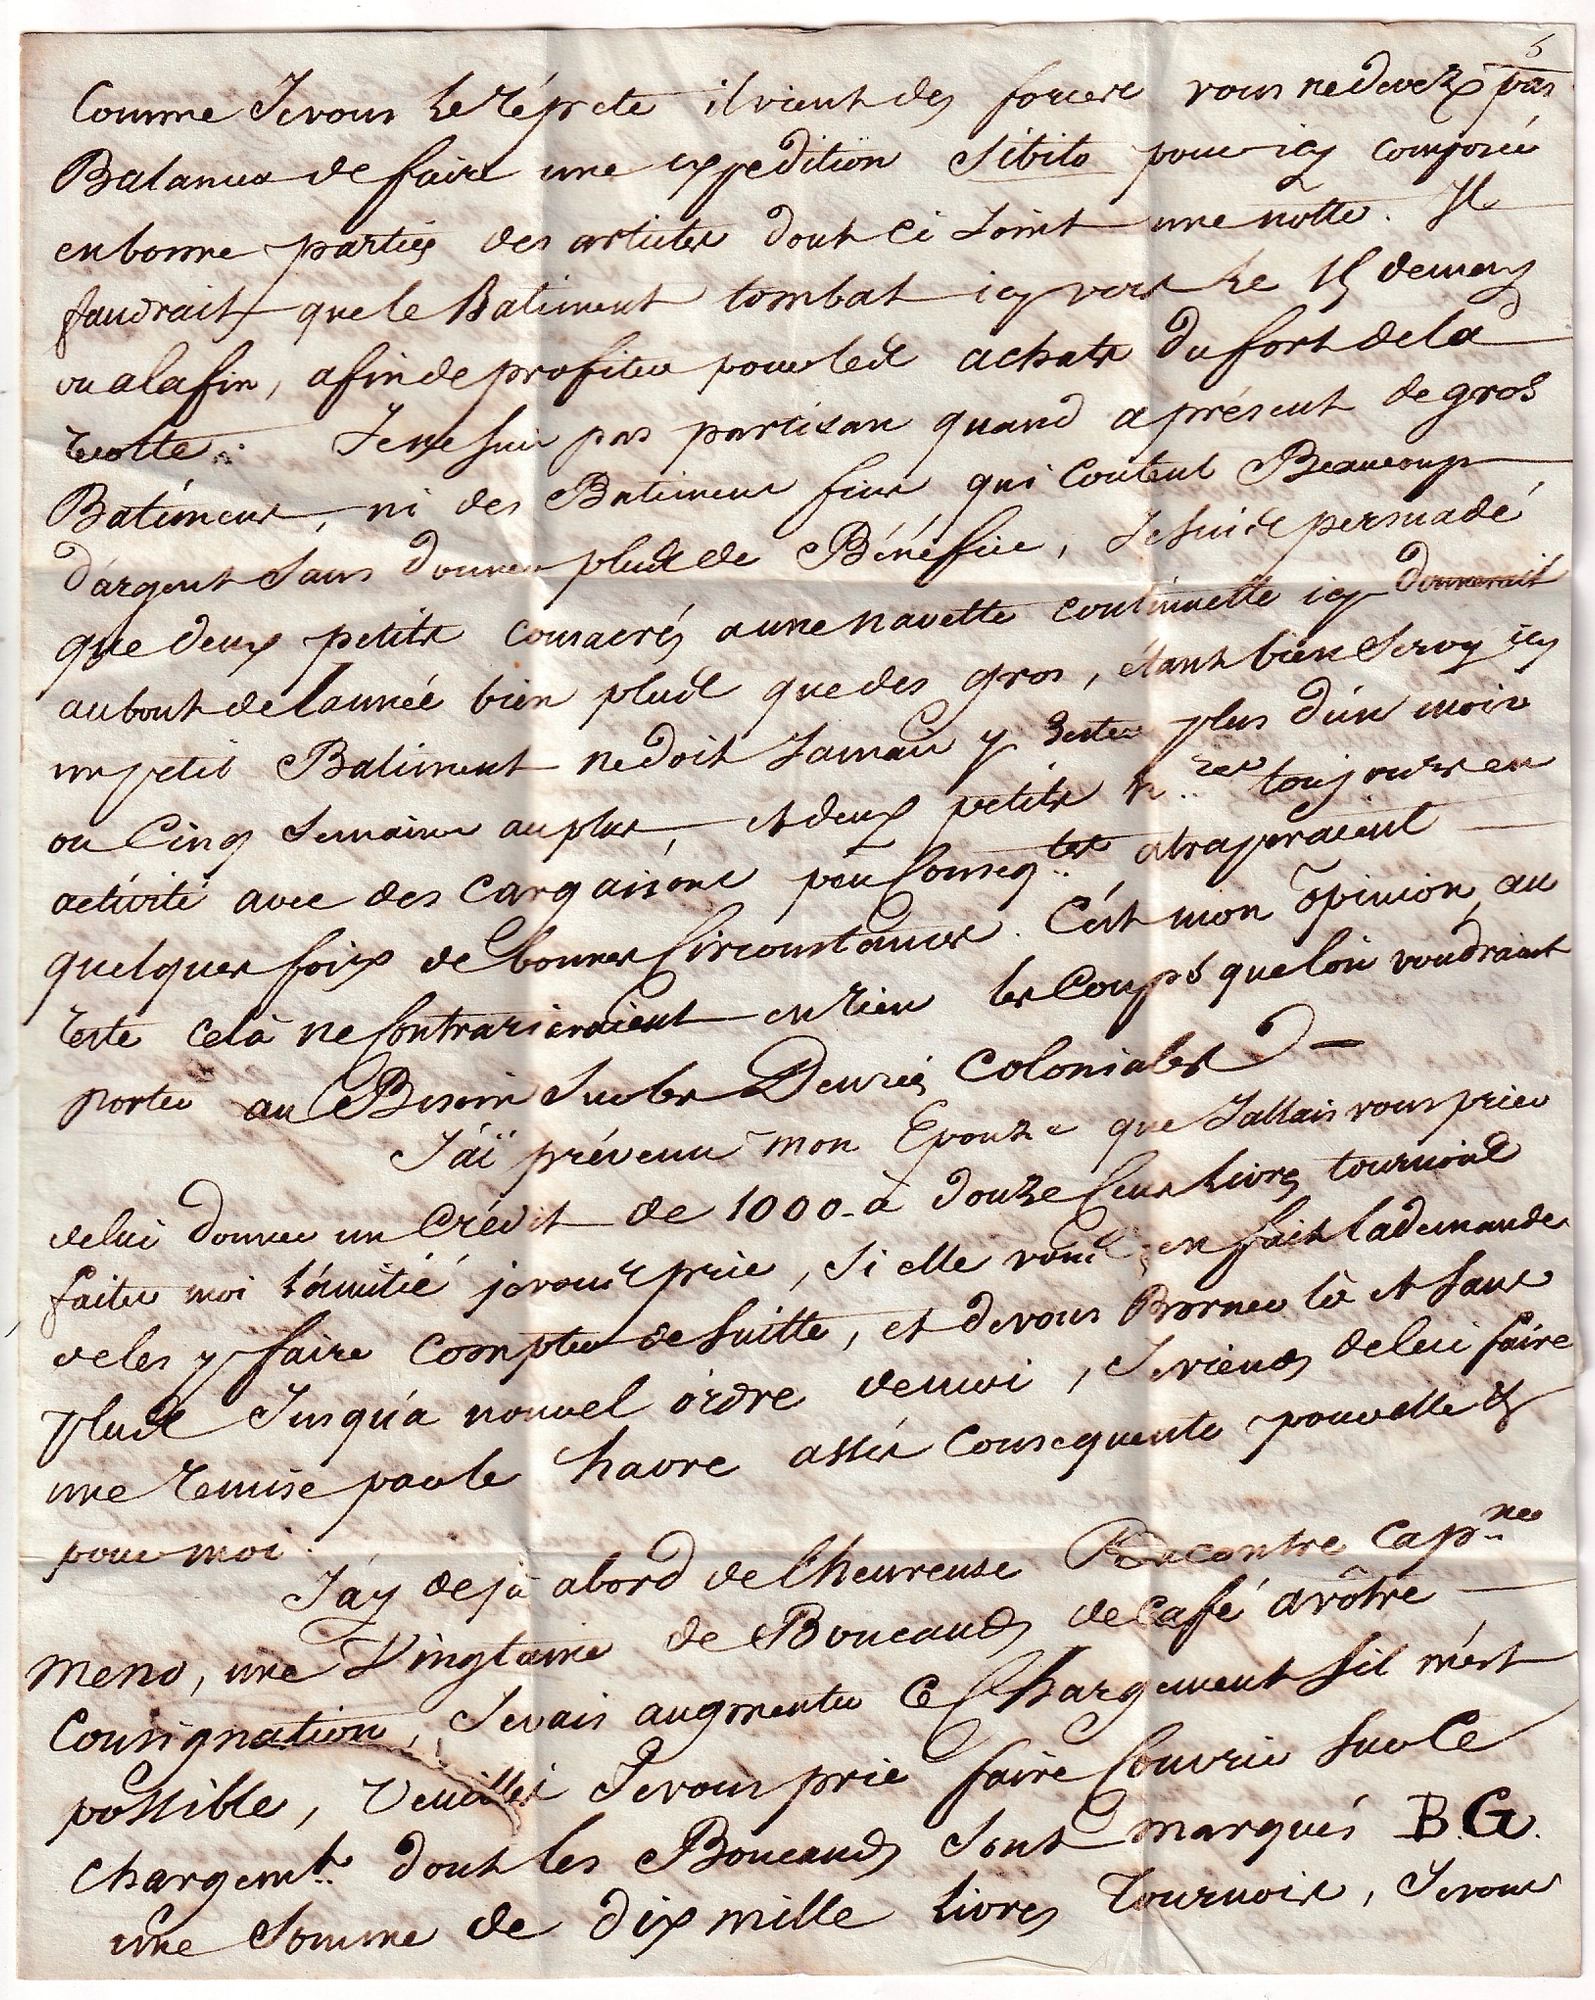 5
Comme Je vous Le répete il vient des forcer vous ne devez pas
Balancer de faire une expedition Sibito pour icy composée
en bonne parties des articles dont ci Joint une notte. Il
faudrait que le Batiment tombat icy vers Le 15 de may
ou a la fin, afin de profiter pour led achats du fort de la
recotte. Je ne suis pas partisan quand a présent de gros
Batimens, ni des Batimens fins qui Coutent Beaucoup
d'argent Sans donner plus de Bénéfice, Je suis persuadé
que deux petits consacrés a une navette continuelle icy donnerait
au bout de Lannée bien plus que des gros, étant bien Servy icy
un petit Batiment ne doit Jamais y rester plus d'un mois
ou Cinq Semaines au plus, et deux petits n.res toujours en
activité avec des Cargaisons peu Conseq.tes atraperaient
quelques foix de bonnes Circonstances. C'est mon opinion, au
reste celà ne Contrarieraient en rien les Coups que l'on voudrait
porter au Besoin Sur les Denrées Coloniales —
J'aï prévenu mon Epouze que J'allais vous prier
de lui donner un Crédit de 1000 à douze Cens Livres tournois
faites moi L'amitié je vous prie, Si elle vous en fait la demande
de les y faire compter de Suitte, et de vous Borner là et Sans
plus Jusqu'a nouvel ordre de moi, Je viens de lui faire
une remise par le havre assés Consequente pour elle &
pour moi.
J'ay deja a bord de L'heureuse Recontre Cap.ne
Meno, une Vingtaine de Boucauds de Café a vôtre
Consignation, Je vais augmenter Ce Chargement S'il m'est
possible, Veuillés Je vous prie faire Couvrir Sur Ce
chargem.t dont les Boucauds Sont marqués B.G.
une Somme de dix mille Livres Tournois, Je vous